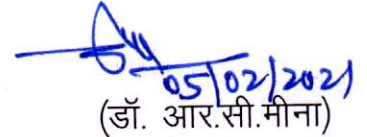 05/02/2021
(डॉ. आर.सी.मीना)